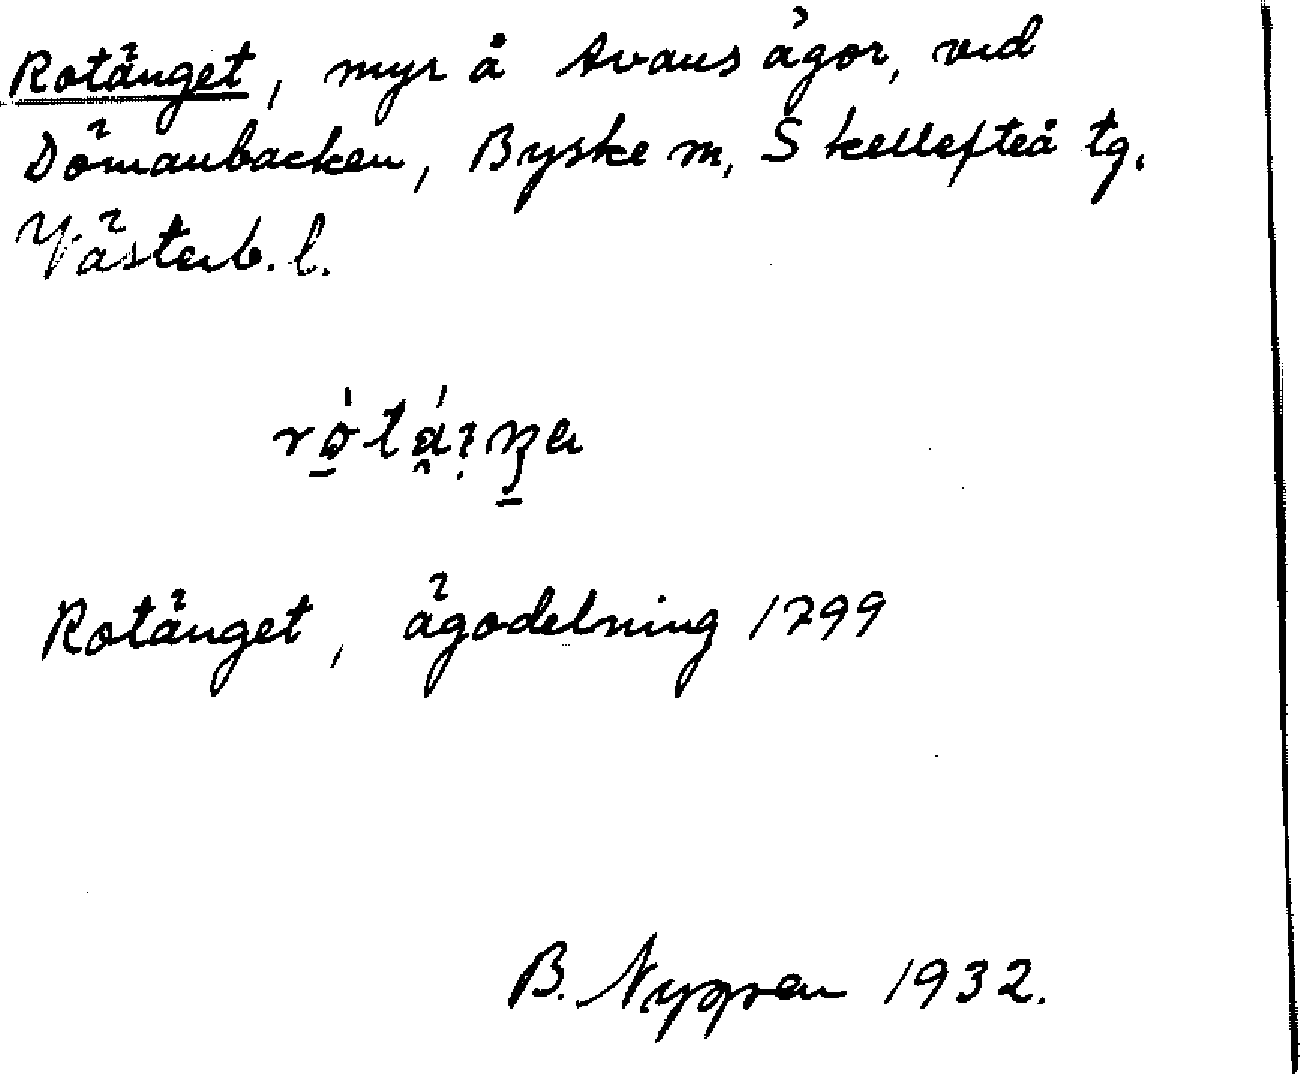 Rotänget, myr å Avans ägor, vid
Dömanbacken, Byske m, Skellefteå tg.
Västerb. l.
Rotänget, ägodelning 1799
B. Nygren 1932.